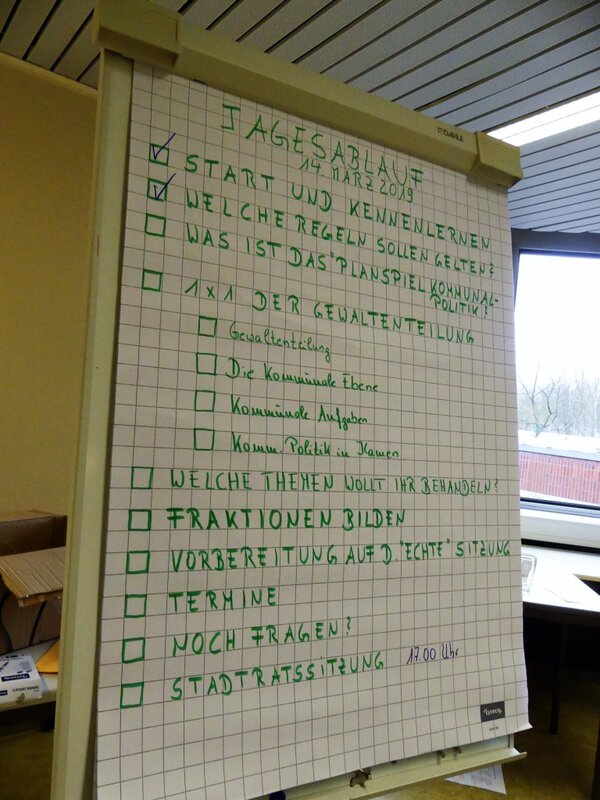 DAHLE
TAGESABLAUF
14. MÄRZ 2019
START UND KENNENLERNEN
WELCHE REGELN SOLLEN GELTEN?
WAS IST DAS "PLANSPIEL KOMMUNAL-
POLITIK?
1x1 DER GEWALTENTEILUNG
Gewaltenteilung
Die Kommunale Ebene
Kommunale Aufgaben
Komm. Politik in Kamen
WELCHE THEMEN WOLLT IHR BEHANDELN?
FRAKTIONEN BILDEN
VORBEREITUNG AUF D. "ECHTE" SITZUNG
TERMINE
NOCH FRAGEN?
STADTRATSSITZUNG 17.00 Uhr